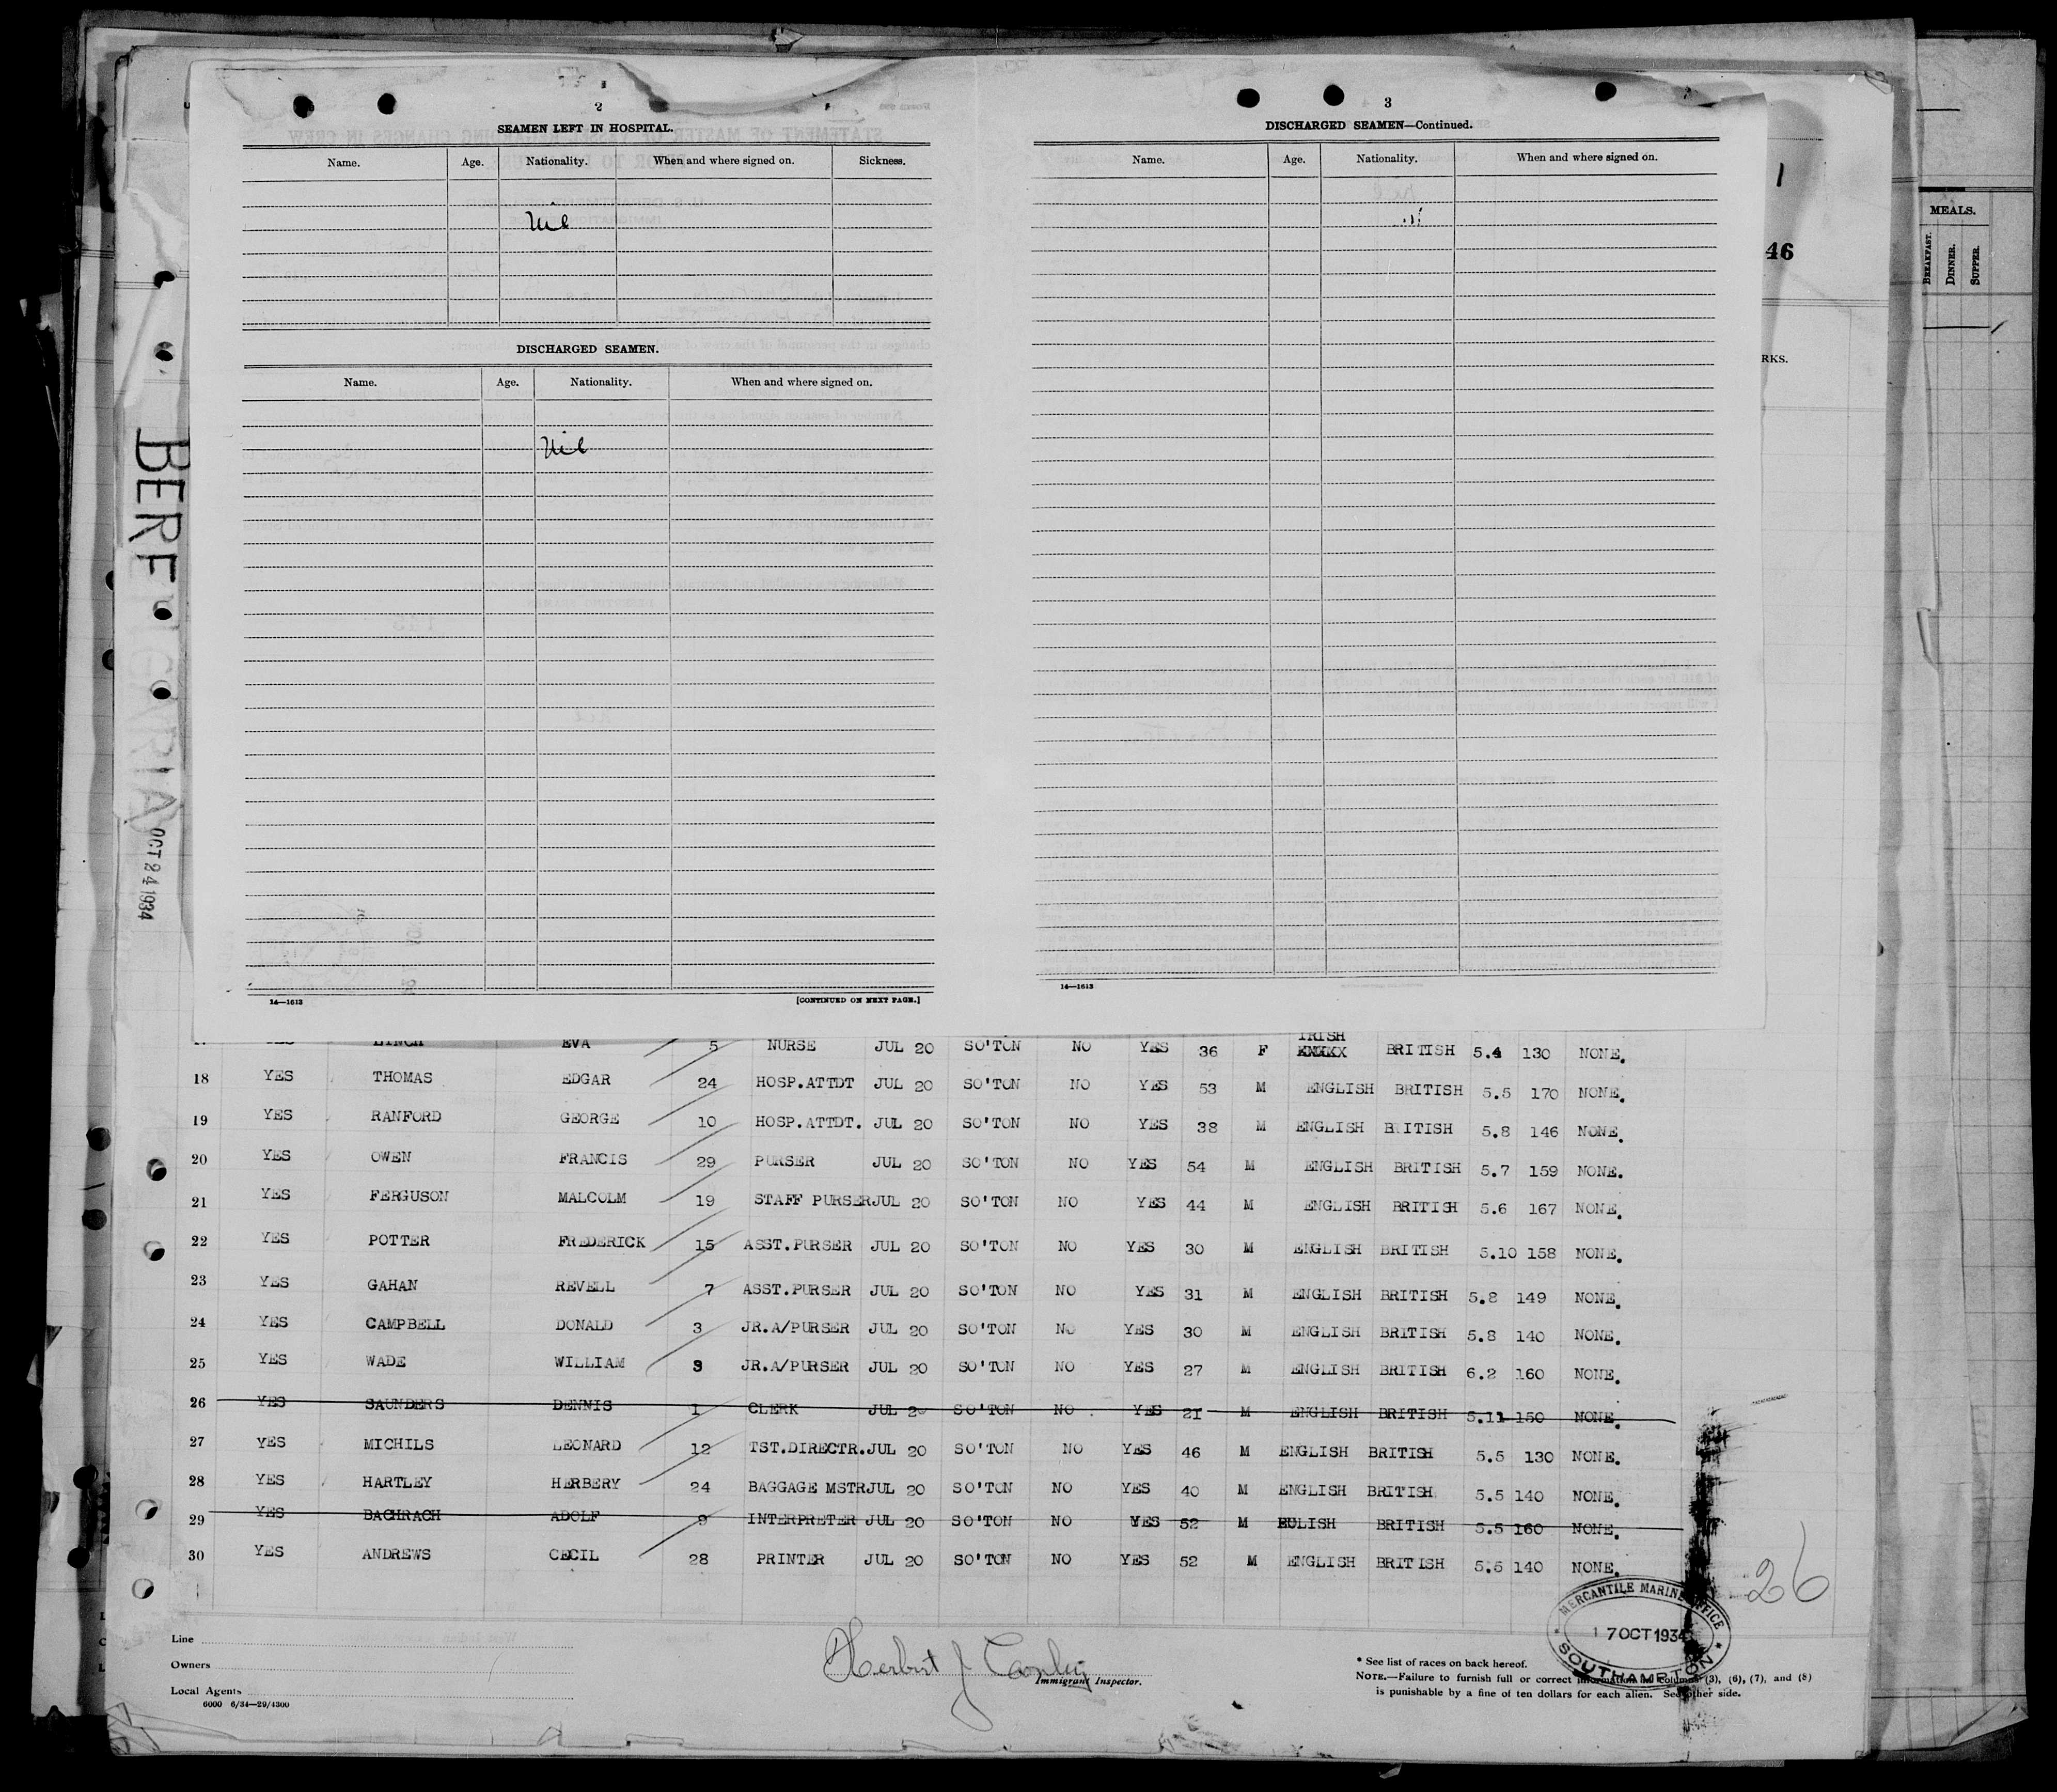 2
SEAMEN LEFT IN HOSPITAL.
Name. Age. Nationality. When and where signed on. Sickness.
Nil
DISCHARGED SEAMEN.
Name. Age. Nationality. When and where signed on.
Nil
14—1613 [CONTINUED ON NEXT PAGE.]
3
DISCHARGED SEAMEN—Continued.
Name. Age. Nationality. When and where signed on.
14—1613
1
46
RKS.
MEALS.
BREAKFAST. DINNER. SUPPER.
BERENGARIA OCT 24 1934
LYNCH EVA 5 NURSE JUL 20 SO'TON NO YES 36 F IRISH BRITISH 5.4 130 NONE.
18 YES THOMAS EDGAR 24 HOSP.ATTDT JUL 20 SO'TON NO YES 53 M ENGLISH BRITISH 5.5 170 NONE.
19 YES RANFORD GEORGE 10 HOSP.ATTDT. JUL 20 SO'TON NO YES 38 M ENGLISH BRITISH 5.8 146 NONE.
20 YES OWEN FRANCIS 29 PURSER JUL 20 SO'TON NO YES 54 M ENGLISH BRITISH 5.7 159 NONE.
21 YES FERGUSON MALCOLM 19 STAFF PURSER JUL 20 SO'TON NO YES 44 M ENGLISH BRITISH 5.6 167 NONE.
22 YES POTTER FREDERICK 15 ASST.PURSER JUL 20 SO'TON NO YES 30 M ENGLISH BRITISH 5.10 158 NONE.
23 YES GAHAN REVELL 7 ASST.PURSER JUL 20 SO'TON NO YES 31 M ENGLISH BRITISH 5.8 149 NONE.
24 YES CAMPBELL DONALD 3 JR.A/PURSER JUL 20 SO'TON NO YES 30 M ENGLISH BRITISH 5.8 140 NONE.
25 YES WADE WILLIAM 3 JR.A/PURSER JUL 20 SO'TON NO YES 27 M ENGLISH BRITISH 6.2 160 NONE.
26 YES SAUNDERS DENNIS 1 CLERK JUL 20 SO'TON NO. YES 21 M ENGLISH BRITISH 5.11 150 NONE.
27 YES MICHILS LEONARD 12 TST.DIRECTR. JUL 20 SO'TON NO YES 46 M ENGLISH BRITISH 5.5 130 NONE.
28 YES HARTLEY HERBERY 24 BAGGAGE MSTR JUL 20 SO'TON NO YES 40 M ENGLISH BRITISH 5.5 140 NONE.
29 YES BACHRACH ADOLF 9 INTERPRETER JUL 20 SO'TON NO YES 52 M BRITISH 5.5 160 NONE.
30 YES ANDREWS CECIL 28 PRINTER JUL 20 SO'TON NO YES 52 M ENGLISH BRITISH 5.5 140 NONE.
26
MERCANTILE MARINE OFFICE
17 OCT 1934
SOUTHAMPTON
Line
Owners
Local Agents
6000 6/34—29/4300
Herbert J
Immigrant Inspector.
* See list of races on back hereof.
NOTE.—Failure to furnish full or correct information in columns (3), (6), (7), and (8)
is punishable by a fine of ten dollars for each alien. See other side.